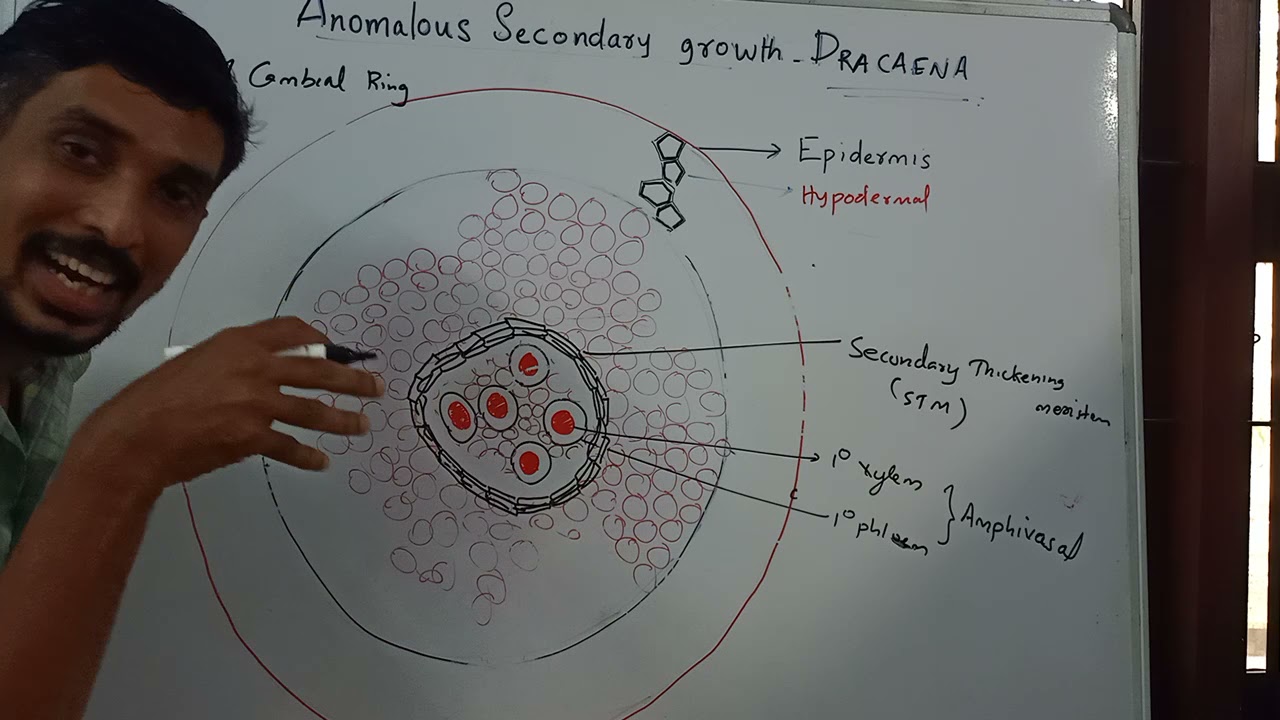 Anomalous Secondary growth - DRACAENA
Cambial Ring
Epidermis
Hypodermal
Secondary Thickening
(STM) meristem
1° xylem
1° phloem
} Amphivasal